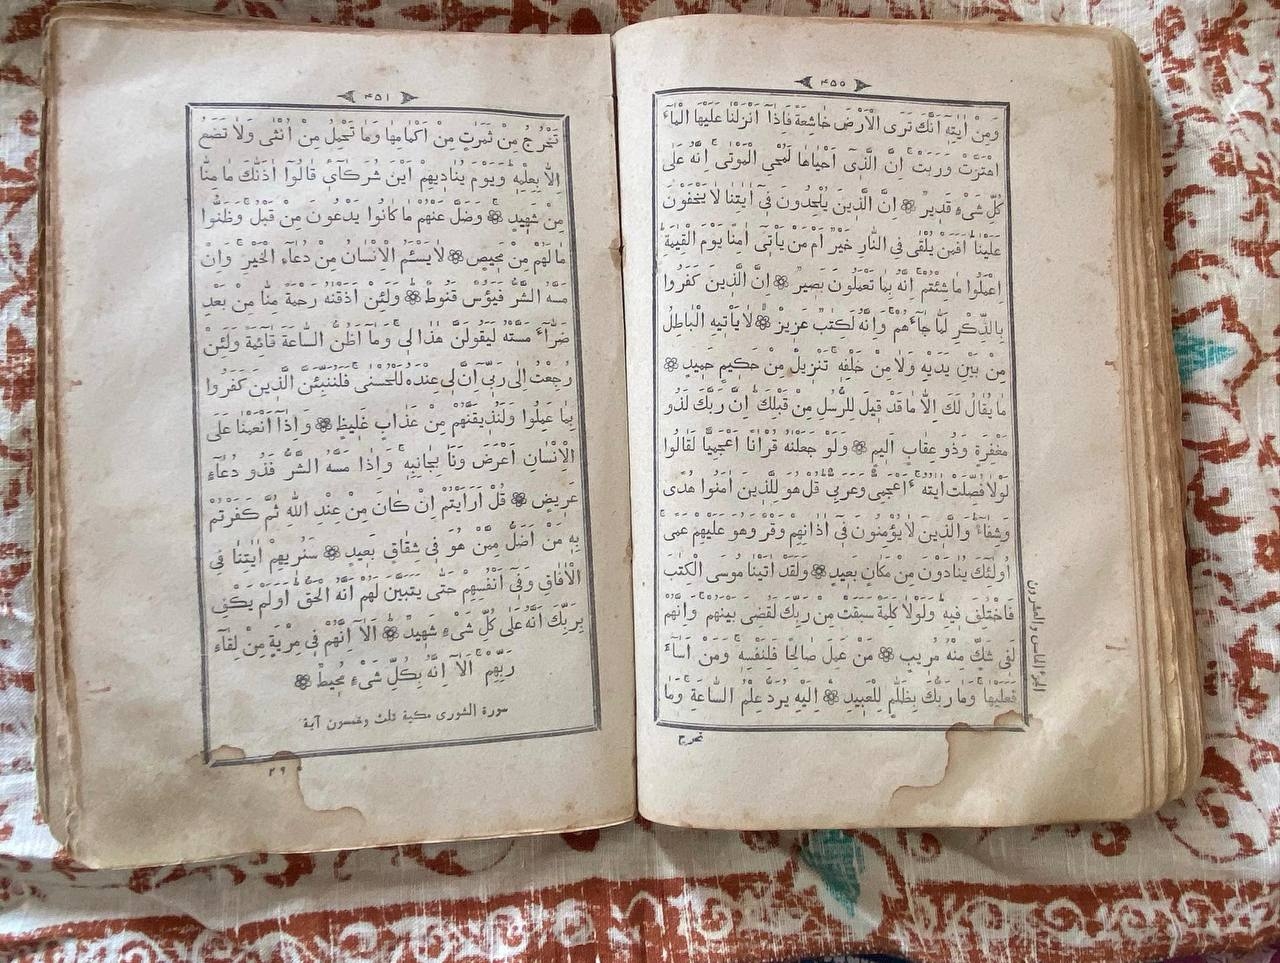 ٤٥٠
وَمِنْ اٰيَاتِه۪ٓ اَنَّكَ تَرَى الْاَرْضَ خَاشِعَةً فَاِذَٓا اَنْزَلْنَا عَلَيْهَا الْمَٓاءَ
اهْتَزَّتْ وَرَبَتْ اِنَّ الَّذ۪ٓى اَحْيَاهَا لَمُحْيِ الْمَوْتٰى اِنَّهُ عَلٰى
كُلِّ شَىْءٍ قَد۪يرٌ ۞ اِنَّ الَّذ۪ينَ يُلْحِدُونَ ف۪ٓى اٰيَاتِنَا لَا يَخْفَوْنَ
عَلَيْنَا اَفَمَنْ يُلْقٰى فِى النَّارِ خَيْرٌ اَمْ مَنْ يَأْت۪ٓى اٰمِنًا يَوْمَ الْقِيٰمَةِ
اِعْمَلُوا مَا شِئْتُمْ اِنَّهُ بِمَا تَعْمَلُونَ بَص۪يرٌ ۞ اِنَّ الَّذ۪ينَ كَفَرُوا
بِالذِّكْرِ لَمَّا جَٓاءَهُمْ وَاِنَّهُ لَكِتَابٌ عَز۪يزٌ ۞ لَا يَأْت۪يهِ الْبَاطِلُ
مِنْ بَيْنِ يَدَيْهِ وَلَا مِنْ خَلْفِه۪ تَنْز۪يلٌ مِنْ حَك۪يمٍ حَم۪يدٍ ۞
مَا يُقَالُ لَكَ اِلَّا مَا قَدْ ق۪يلَ لِلرُّسُلِ مِنْ قَبْلِكَ اِنَّ رَبَّكَ لَذُو
مَغْفِرَةٍ وَذُو عِقَابٍ اَل۪يمٍ ۞ وَلَوْ جَعَلْنَاهُ قُرْاٰنًا اَعْجَمِيًّا لَقَالُوا
لَوْلَا فُصِّلَتْ اٰيَاتُهُ ءَاَعْجَمِىٌّ وَعَرَبِىٌّ قُلْ هُوَ لِلَّذ۪ينَ اٰمَنُوا هُدًى
وَشِفَٓاءٌ وَالَّذ۪ينَ لَا يُؤْمِنُونَ ف۪ٓى اٰذَانِهِمْ وَقْرٌ وَهُوَ عَلَيْهِمْ عَمًى
اُو۬لٰٓئِكَ يُنَادَوْنَ مِنْ مَكَانٍ بَع۪يدٍ ۞ وَلَقَدْ اٰتَيْنَا مُوسَى الْكِتَابَ
فَاخْتُلِفَ ف۪يهِ وَلَوْلَا كَلِمَةٌ سَبَقَتْ مِنْ رَبِّكَ لَقُضِىَ بَيْنَهُمْ وَاِنَّهُمْ
لَف۪ى شَكٍّ مِنْهُ مُر۪يبٍ ۞ مَنْ عَمِلَ صَالِحًا فَلِنَفْسِه۪ وَمَنْ اَسَٓاءَ
فَعَلَيْهَا وَمَا رَبُّكَ بِظَلَّامٍ لِلْعَب۪يدِ ۞ اِلَيْهِ يُرَدُّ عِلْمُ السَّاعَةِ وَمَا
الجزؤ الخامس والعشرون
تخرج
٤٥١
تَخْرُجُ مِنْ ثَمَرَاتٍ مِنْ اَكْمَامِهَا وَمَا تَحْمِلُ مِنْ اُنْثٰى وَلَا تَضَعُ
اِلَّا بِعِلْمِه۪ وَيَوْمَ يُنَاد۪يهِمْ اَيْنَ شُرَكَٓاء۪ى قَالُٓوا اٰذَنَّاكَ مَا مِنَّا
مِنْ شَه۪يدٍ ۞ وَضَلَّ عَنْهُمْ مَا كَانُوا يَدْعُونَ مِنْ قَبْلُ وَظَنُّوا
مَا لَهُمْ مِنْ مَح۪يصٍ ۞ لَا يَسْـَٔمُ الْاِنْسَانُ مِنْ دُعَٓاءِ الْخَيْرِ وَاِنْ
مَسَّهُ الشَّرُّ فَيَؤُسٌ قَنُوطٌ ۞ وَلَئِنْ اَذَقْنَاهُ رَحْمَةً مِنَّا مِنْ بَعْدِ
ضَرَّٓاءَ مَسَّتْهُ لَيَقُولَنَّ هٰذَا ل۪ى وَمَٓا اَظُنُّ السَّاعَةَ قَٓائِمَةً وَلَئِنْ
رُجِعْتُ اِلٰى رَبّ۪ٓى اِنَّ ل۪ى عِنْدَهُ لَلْحُسْنٰى فَلَنُنَبِّئَنَّ الَّذ۪ينَ كَفَرُوا
بِمَا عَمِلُوا وَلَنُذ۪يقَنَّهُمْ مِنْ عَذَابٍ غَل۪يظٍ ۞ وَاِذَٓا اَنْعَمْنَا عَلَى
الْاِنْسَانِ اَعْرَضَ وَنَاٰ بِجَانِبِه۪ وَاِذَا مَسَّهُ الشَّرُّ فَذُو دُعَٓاءٍ
عَر۪يضٍ ۞ قُلْ اَرَاَيْتُمْ اِنْ كَانَ مِنْ عِنْدِ اللّٰهِ ثُمَّ كَفَرْتُمْ
بِه۪ مَنْ اَضَلُّ مِمَّنْ هُوَ ف۪ى شِقَاقٍ بَع۪يدٍ ۞ سَنُر۪يهِمْ اٰيَاتِنَا فِى
الْاٰفَاقِ وَف۪ٓى اَنْفُسِهِمْ حَتّٰى يَتَبَيَّنَ لَهُمْ اَنَّهُ الْحَقُّ اَوَلَمْ يَكْفِ
بِرَبِّكَ اَنَّهُ عَلٰى كُلِّ شَىْءٍ شَه۪يدٌ ۞ اَلَٓا اِنَّهُمْ ف۪ى مِرْيَةٍ مِنْ لِقَٓاءِ
رَبِّهِمْ اَلَٓا اِنَّهُ بِكُلِّ شَىْءٍ مُح۪يطٌ ۞
سورة الشورى مكية ثلث وخمسون آية
٢٩